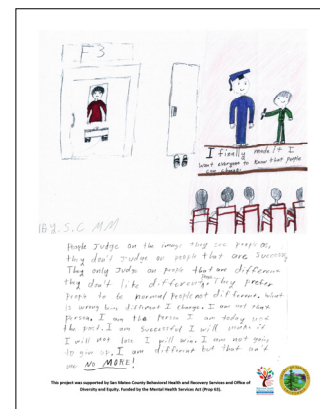 F3
I finally made It I
Want everyone to Know that people
can change.
16 y. S.C MM
People Judge on the image they see people as,
they don't Judge on people that are success,
They only Judge on people that are different
they don't like different, They prefer
people to be normal people not different. What
is wrong bin different I change. I am not that
Person, I am the person I am today not
the past. I am successful I will make it
I will not lose I will win. I am not going
to give up. I am different but that ain't
me NO MORE!
This project was supported by San Mateo County Behavioral Health and Recovery Services and Office of
Diversity and Equity. Funded by the Mental Health Services Act (Prop 63).